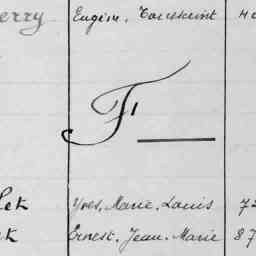 erry Eugène, Toussaint
F
let Yves, Marie, Louis 72
Ernest, Jean, Marie 87